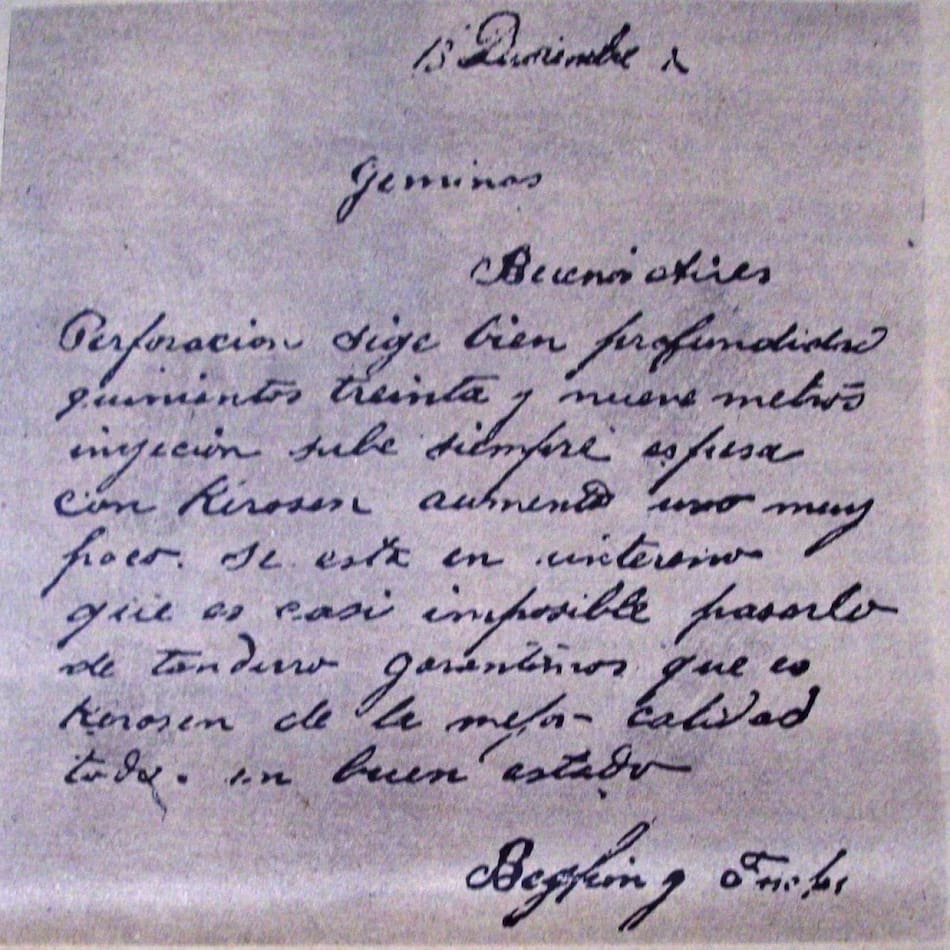 13 Diciembre
Geminas
Buenos Aires
Perforacion sige bien profundidad
quinientos treinta y nueve metros
injecion sube siempre espesa
con Kerosen aumento uno muy
poco. Se esta en un tereno
que es casi imposible pasarlo
de tan durro garantimos que es
Kerosen de la mejor calidad
todo. en buen estado
Beghin y Fuchs